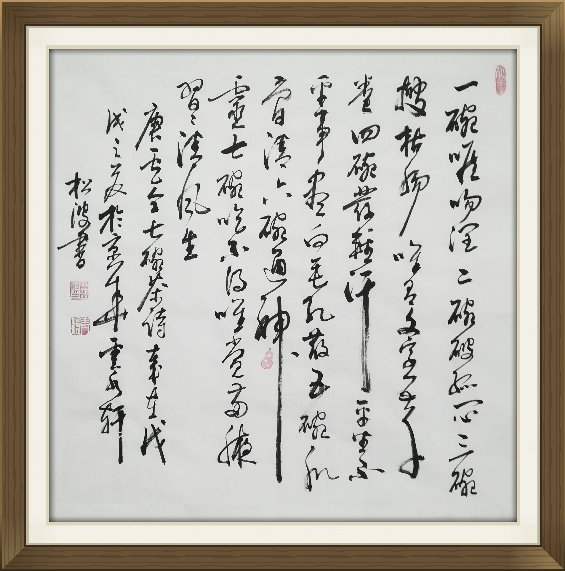 一碗喉吻润二碗破孤闷三碗
搜枯肠唯有文字五千
卷四碗發轻汗平生不
平事尽向毛孔散五碗肌
骨清六碗通神
靈七碗吃不得唯觉两腋
習々清风生
唐卢仝七碗茶诗岁在戊
戌之夏於京华雲水轩
松波書